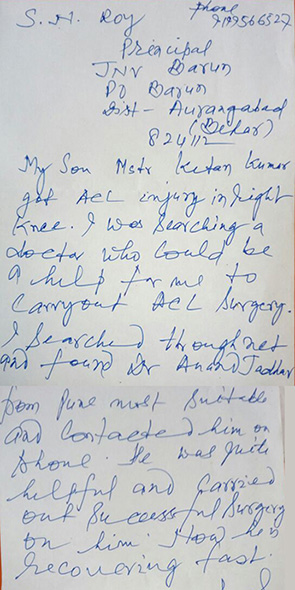 S. N. Roy
Phone
Principal
JNV Barun
PO Barun
Dist- Aurangabad
(Behar)
824112
My Son Mstr Ketan Kumar
got ACL injury in right
Knee. I was searching a
doctor who could be
a help for me to
carryout ACL Surgery.
I searched through net
and found Dr Anand Jadhav
from Pune most suitable
and contacted him on
phone. He was quite
helpful and carried
out successful surgery
on him. Now he is
recovering fast.